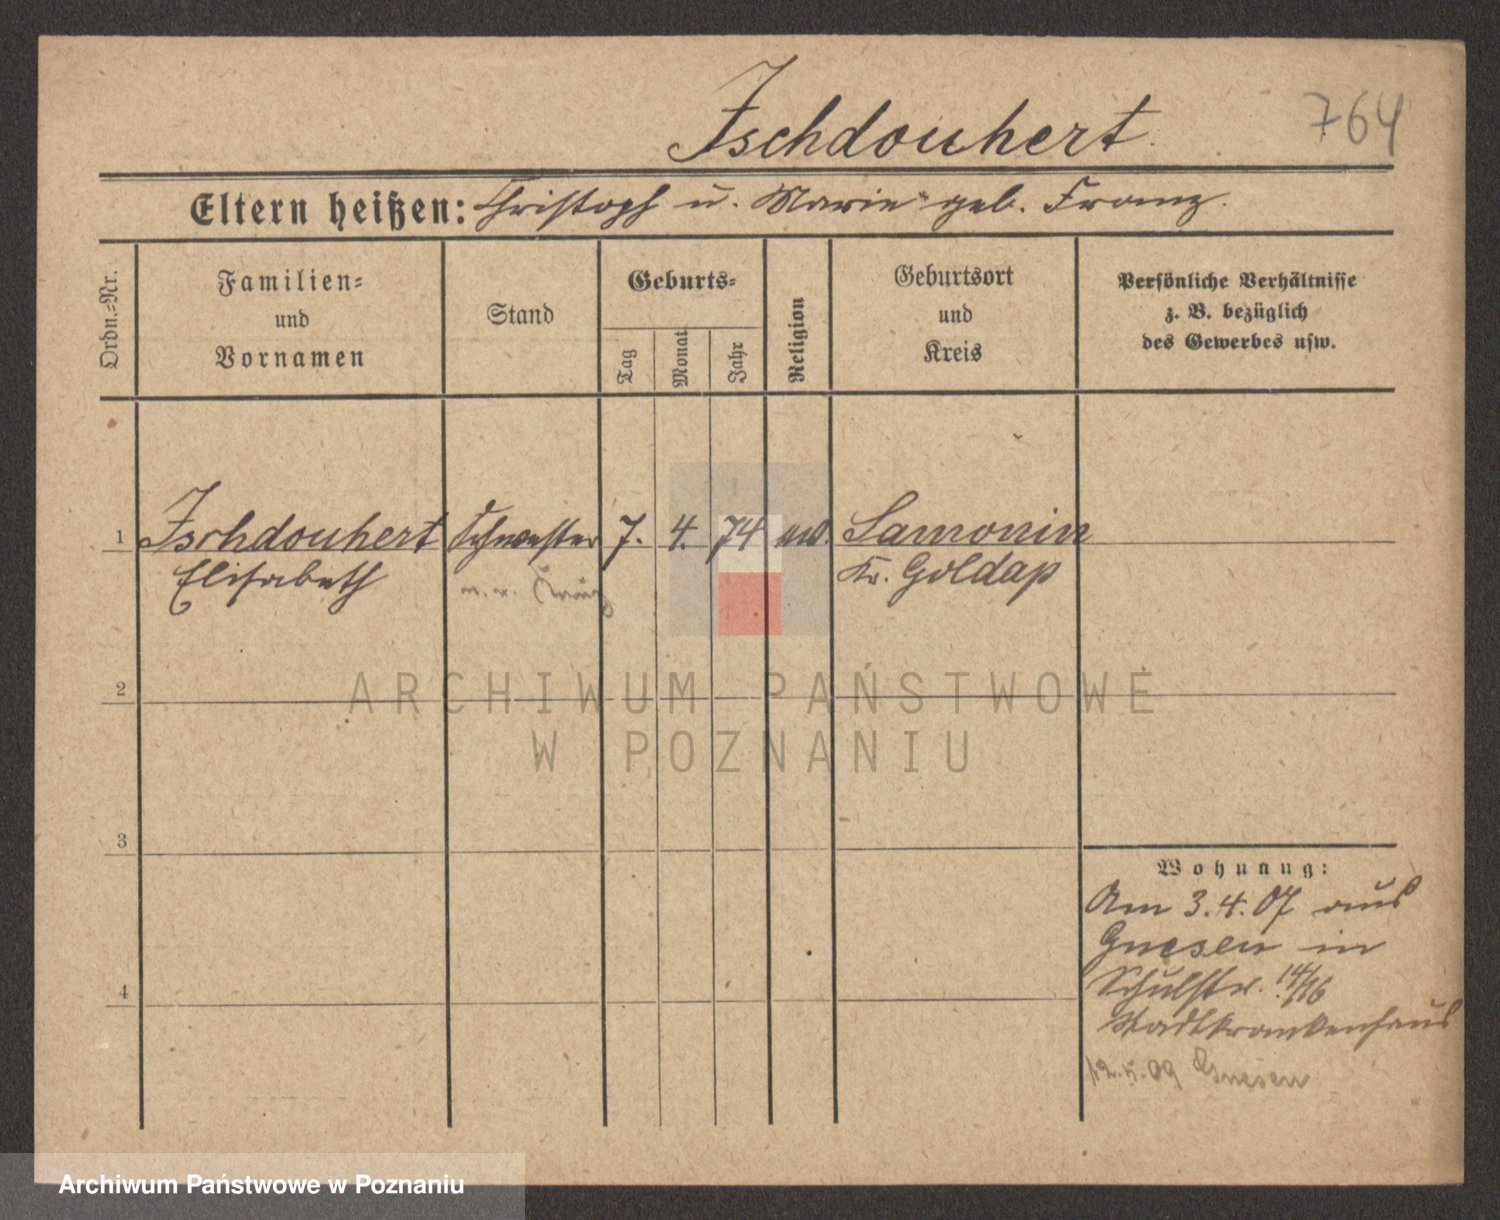 Ischdouhert
764
Eltern heißen: Christoph u. Marie geb. Franz.
Ordn.-Nr.
Familien-
und
Vornamen
Stand
Geburts-
Tag
Monat
Jahr
Religion
Geburtsort
und
Kreis
Persönliche Verhältnisse
z. B. bezüglich
des Gewerbes usw.
1 Ischdouhert Schwester 7. 4. 74 ev. Samonin
Elisabeth Kr. Goldap
ARCHIWUM PAŃSTWOWE
W POZNANIU
2
3
4
Wohnung:
Am 3.4.07 aus
Gnesen in
Schulstr. 14/16
Stadtkrankenhaus
09 Gnesen
Archiwum Państwowe w Poznaniu